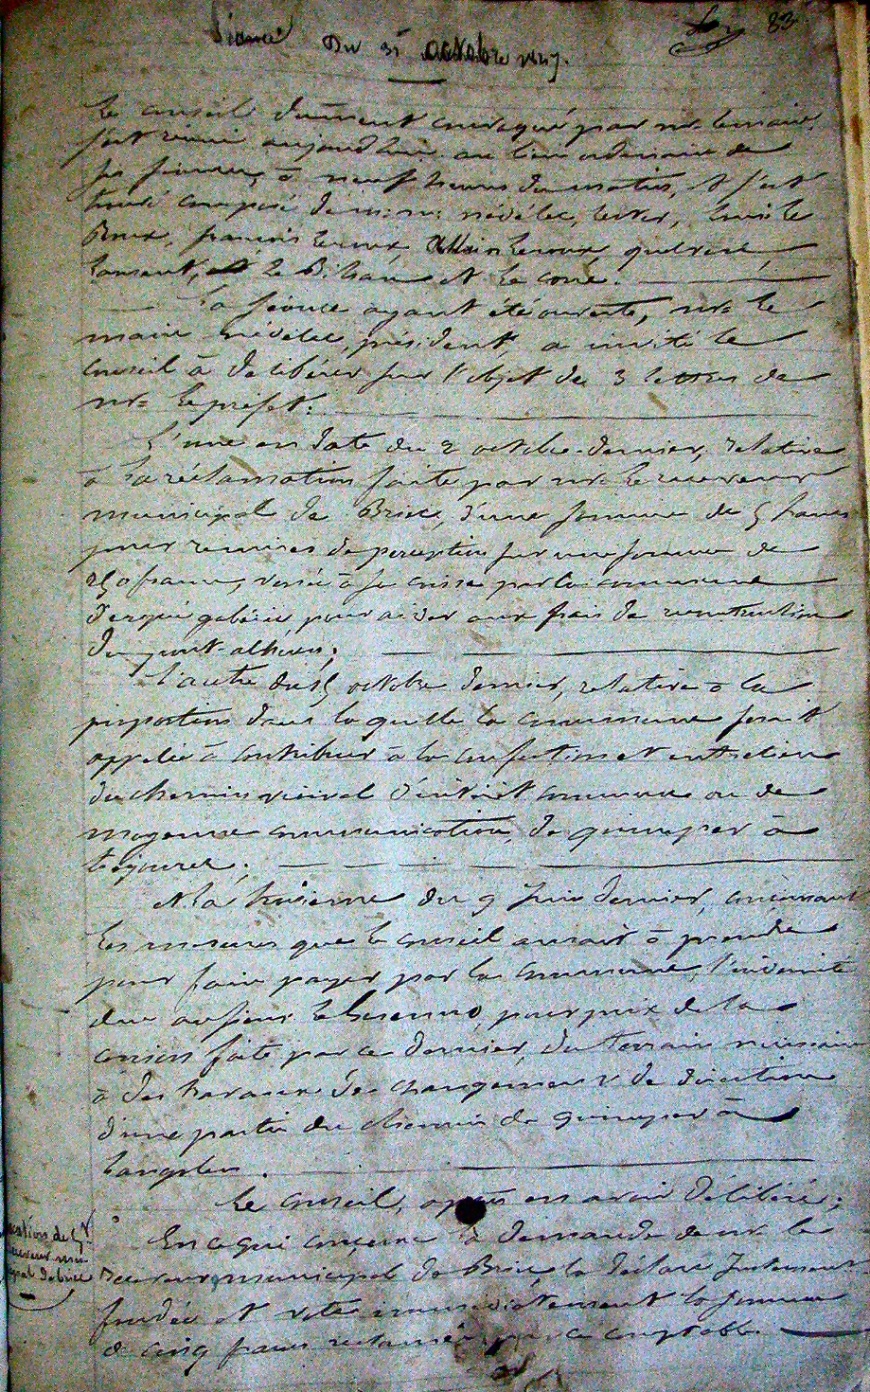 83
Séance Du 31 octobre 1847.
Le conseil dûment convoqué par mr. le maire,
s'est réuni aujourd'hui au lieu ordinaire de
ses séances, à neuf heures du matin, et s'est
trouvé composé de m.m. nédélec, Louis le
Roux, françois Leroux, Allain Leroux,
le Bihan et Le
La séance ayant été ouverte, mr. le
maire nédélec, président, a invité le
Conseil à délibérer sur l'objet de 3 lettres de
mr. le préfet:
L'une en date du 2 octobre dernier, relative
à la réclamation faite par mr. le receveur
municipal de Briec, d'une somme de 5 francs
pour remises de perception sur une somme de
250 francs, versée à sa caisse par la commune
d'ergué gabéric pour aider aux frais de reconstruction
du pont
L'autre du 15 octobre dernier, relative à la
proportion dans laquelle la commune serait
appelée à contribuer à la confection et entretien
du chemin vicinal d'intérêt commun ou de
moyenne communication, de quimper à
Et la troisième du 9 juin dernier, concernant
les mesures que le conseil aurait à prendre
pour faire payer par la commune, l'indemnité
due au sieur pour prix de la
cession faite par ce dernier, du terrain nécessaire
à des travaux de changement de direction
d'une partie du chemin de quimper à
Langolen.
Le conseil, après en avoir délibéré;
En ce qui concerne la demande de mr. le
Receveur municipal de Briec, la déclare justement
fondée et vote immédiatement la somme
de cinq francs réclamée par ce comptable.
de 5 f.
receveur muni
cipal de briec